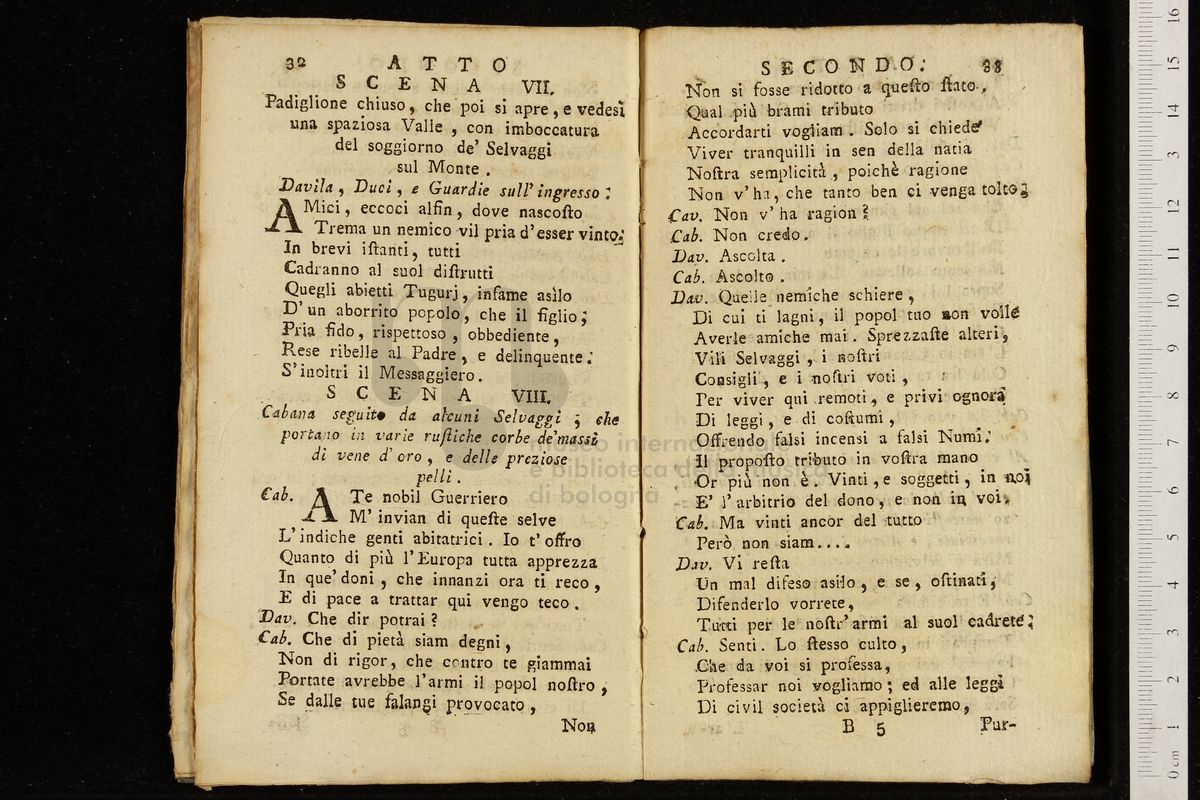 32 ATTO
SCENA VII.
Padiglione chiuso, che poi si apre, e vedesi
una spaziosa Valle, con imboccatura
del soggiorno de' Selvaggi
sul Monte.
Davila, Duci, e Guardie sull' ingresso.
AMici, eccoci alfin, dove nascoſto
Trema un nemico vil pria d'esser vinto.
In brevi iſtanti, tutti
Cadranno al suol diſtrutti
Quegli abietti Tugurj, infame asìlo
D'un aborrito popolo, che il figlio;
Pria fido, rispettoso, obbediente,
Rese ribelle al Padre, e delinquente.
S'inoltri il Messaggiero.
SCENA VIII.
Cabana seguito da alcuni Selvaggi; che
portano in varie ruſtiche corbe de'massi
di vene d'oro, e delle preziose
pelli.
Cab. ATe nobil Guerriero
M'invian di queſte selve
L'indiche genti abitatrici. Io t'offro
Quanto di più l'Europa tutta apprezza
In que' doni, che innanzi ora ti reco,
E di pace a trattar qui vengo teco.
Dav. Che dir potrai?
Cab. Che di pietà siam degni,
Non di rigor, che contro te giammai
Portate avrebbe l'armi il popol noſtro,
Se dalle tue falangi provocato,
Non
SECONDO. 33
Non si fosse ridotto a queſto ſtato.
Qual più brami tributo
Accordarti vogliam. Solo si chiede
Viver tranquilli in sen della natia
Noſtra semplicità, poichè ragione
Non v'ha, che tanto ben ci venga tolto.
Cav. Non v'ha ragion?
Cab. Non credo.
Dav. Ascolta.
Cab. Ascolto.
Dav. Quelle nemiche schiere,
Di cui ti lagni, il popol tuo non volle
Averle amiche mai. Sprezzaſte alteri,
Vili Selvaggi, i noſtri
Consigli, e i noſtri voti,
Per viver qui remoti, e privi ognora
Di leggi, e di coſtumi,
Offrendo falsi incensi a falsi Numi.
Il propoſto tributo in voſtra mano
Or più non è. Vinti, e soggetti, in noi
E' l'arbitrio del dono, e non in voi.
Cab. Ma vinti ancor del tutto
Però non siam....
Dav. Vi reſta
Un mal difeso asilo, e se, oſtinati,
Difenderlo vorrete,
Tutti per le noſtr'armi al suol cadrete.
Cab. Senti. Lo ſtesso culto,
Che da voi si professa,
Professar noi vogliamo; ed alle leggi
Di civil società ci appiglieremo,
B 5 Pur-
museo internazionale
e biblioteca della musica
di bologna
0 cm 1 2 3 4 5 6 7 8 9 10 11 12 13 14 15 16